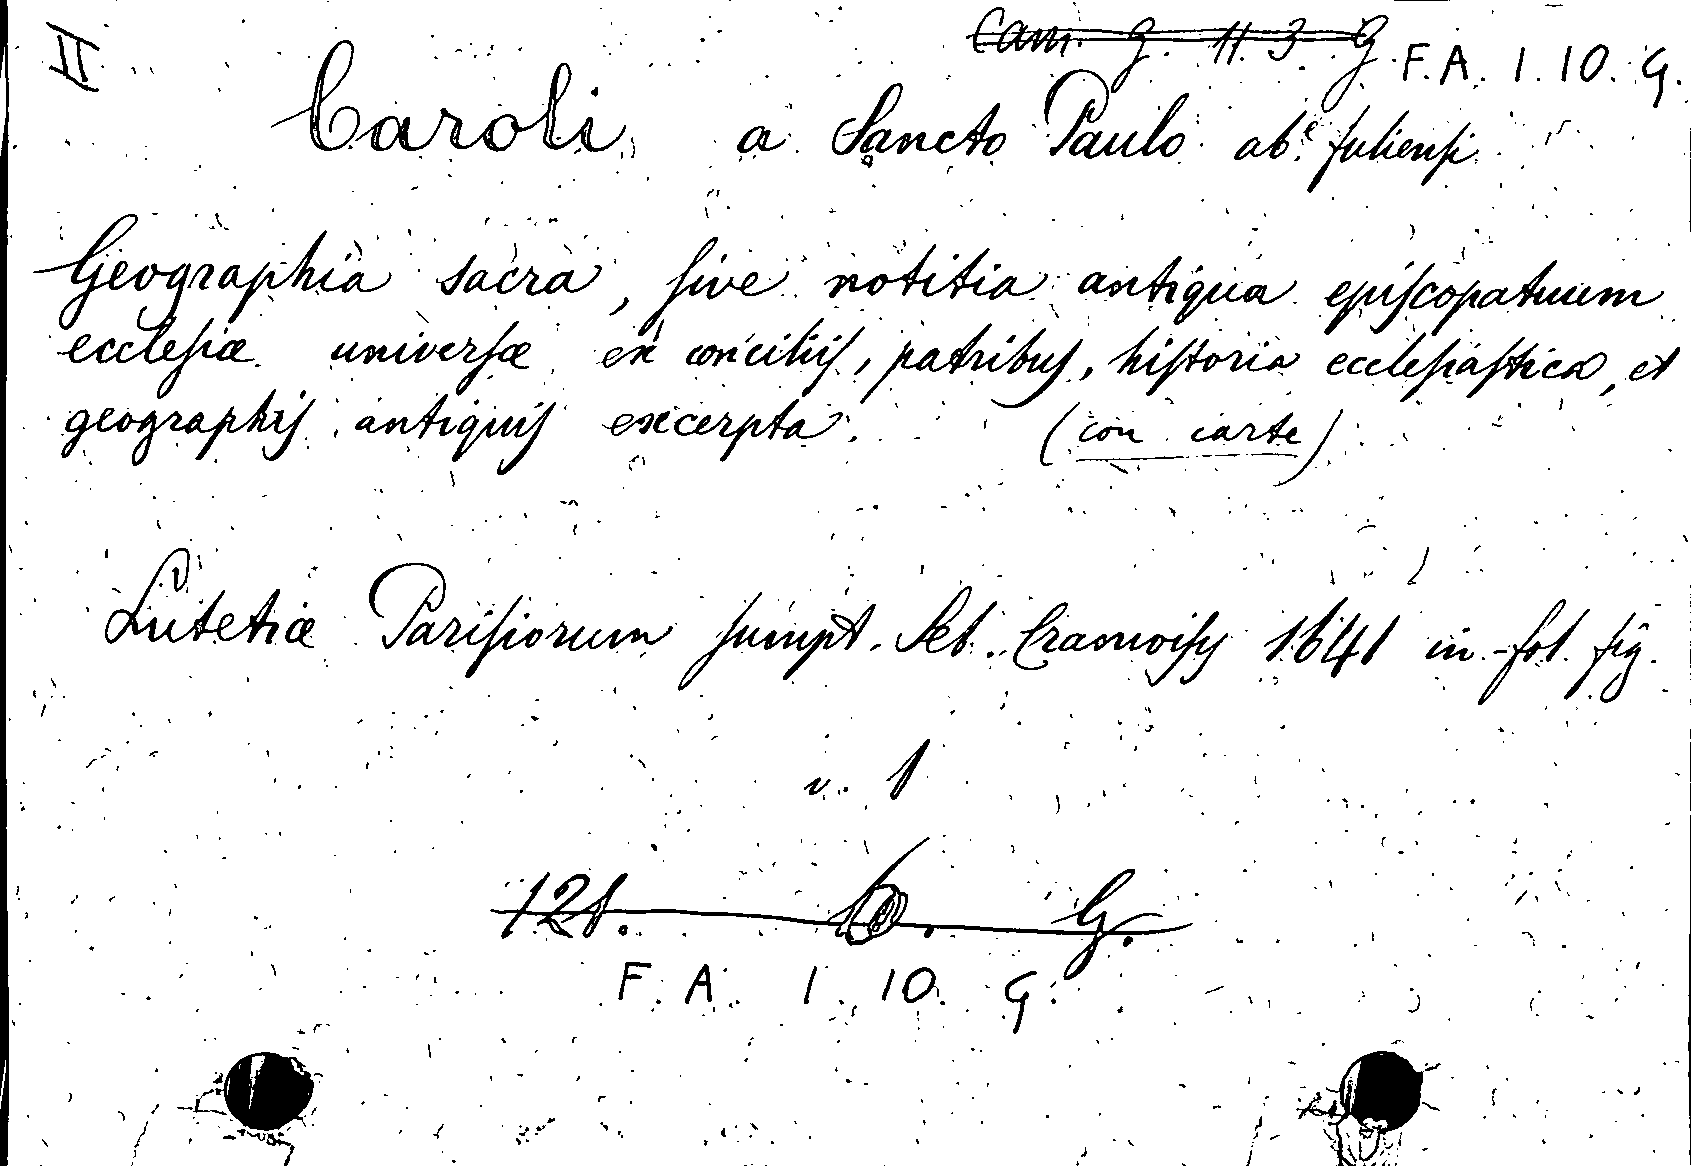 II
Cam. G. 11. 3. G. F. A. 1. 10. G.
Caroli a Sancto Paulo ab.e fulienſi
Geographia sacra, ſive notitia antiqua epiſcopatuum
eccleſiæ univerſæ ex conciliiſ, patribuſ, hiſtoria eccleſiaſtica, et
geographiſ antiquiſ excerpta. (con carte)
Lutetiæ Pariſiorum ſumpt. Seb. Cramoiſy 1641 in-fol. fig.
v. 1
121. G.
F. A. 1. 10. G.